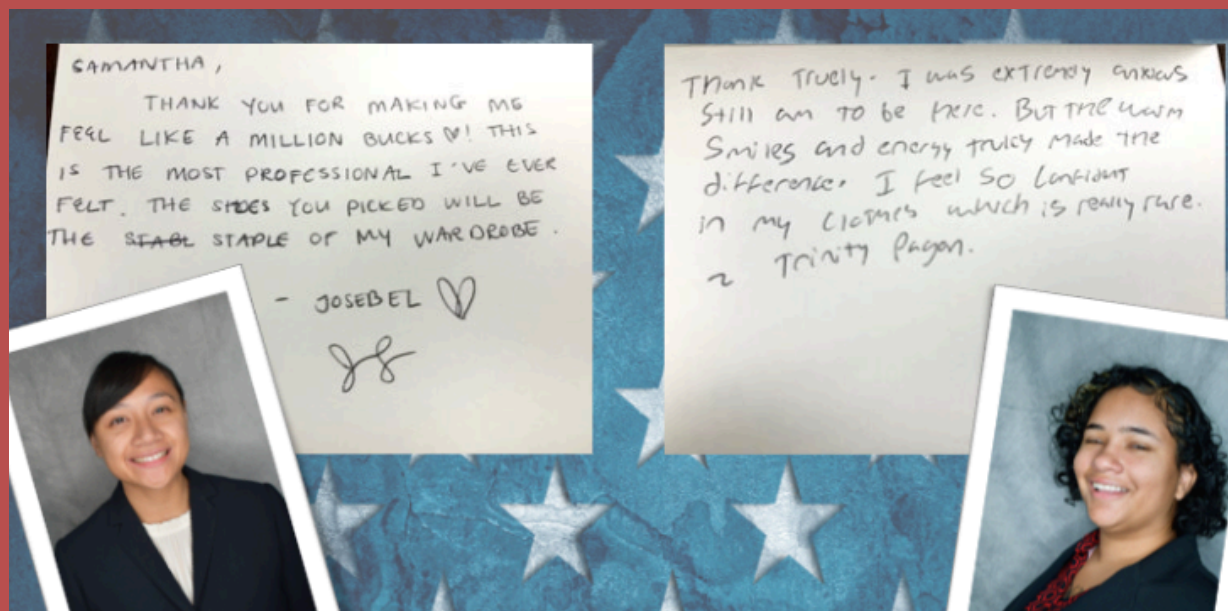 SAMANTHA,
THANK YOU FOR MAKING ME
FEEL LIKE A MILLION BUCKS ♡! THIS
IS THE MOST PROFESSIONAL I'VE EVER
FELT. THE YOU PICKED WILL BE
THE STABL STAPLE OF MY WARDROBE.
- JOSEBEL ♡
Thank Truely. I was extremely anxious
Still am to be here. But the warm
Smiles and energy truley made the
difference. I feel so confident
in my clothes which is really rare.
~ Trinity Pagan.